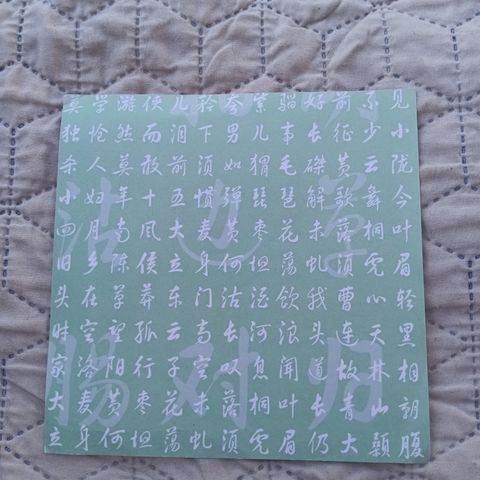 莫学游侠儿矜夸紫骝好前不见
独怆然而泪下男儿事长征少小
杀人莫敢前须如猬毛磔黄云陇
小妇年十五惯弹琵琶解歌舞今
四月南风大麦黄枣花未落桐叶
旧乡陈侯立身何坦荡虬须虎眉
头在草莽东门沽酒饮我曹心轻
时空望孤云高长河浪头连天黑
家洛阳行子空叹息闻道故林相
大麦黄枣花未落桐叶长青山朝
立身何坦荡虬须虎眉仍大颡腹
边草
肠对归